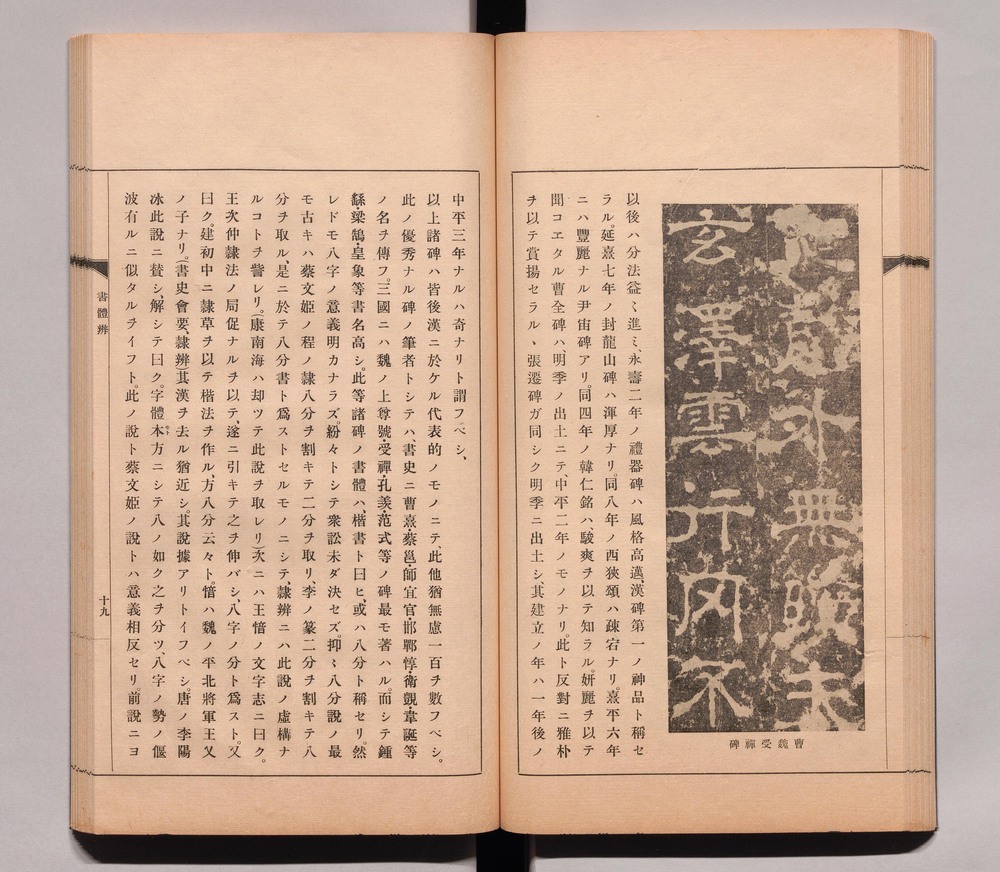 玄澤雲行罔不
曹魏受禪碑
以後ハ分法益〻進ミ、永壽二年ノ禮器碑ハ、風格高邁、漢碑第一ノ神品ト稱セ
ラル。延熹七年ノ封龍山碑ハ渾厚ナリ。同八年ノ西狹頌ハ疎宕ナリ。熹平六年
ニハ豐麗ナル尹宙碑アリ。同四年ノ韓仁銘ハ、駿爽ヲ以テ知ラル。妍麗ヲ以テ
聞コエタル曹全碑ハ、明季ノ出土ニテ、中平二年ノモノナリ。此ト反對ニ雅朴
ヲ以テ賞揚セラルヽ張遷碑ガ同シク明季ニ出土シ、其建立ノ年ハ一年後ノ
中平三年ナルハ奇ナリト謂フベシ、
以上諸碑ハ皆後漢ニ於ケル代表的ノモノニテ、此他猶無慮一百ヲ數フベシ。
此ノ優秀ナル碑ノ筆者トシテハ、書史ニ曹熹・蔡邕・師宜官・邯鄲惇・衞覬・韋誕等
ノ名ヲ傳フ。三國ニハ魏ノ上尊號・受禪・孔羨・范式等ノ碑最モ著ハル。而シテ鍾
繇・梁鵠・皇象等書名高シ。此等諸碑ノ書體ハ、楷書ト曰ヒ、或ハ八分ト稱セリ。然
レドモ八字ノ意義明カナラズ。紛々トシテ衆訟未ダ決セズ。抑〻八分說ノ最
モ古キハ蔡文姬ノ程ノ隷八分ヲ割キテ二分ヲ取リ、李ノ篆二分ヲ割キテ八
分ヲ取ル、是ニ於テ八分書ト爲ストセルモノニシテ、隷辨ニハ此說ノ虛構ナ
ルコトヲ訾レリ。(康南海ハ却ツテ此說ヲ取レリ)次ニハ王愔ノ文字志ニ曰ク。
王次仲隷法ノ局促ナルヲ以テ、遂ニ引キテ之ヲ伸バシ、八字ノ分ト爲スト。又
曰ク。建初中ニ隷草ヲ以テ楷法ヲ作ル、方八分云々ト。愔ハ魏ノ平北將軍王乂
ノ子ナリ。(書史會要、隷辨)其漢ヲ去ル猶近シ。其說據アリトイフベシ。唐ノ李陽
冰此說ニ贊シ、解シテ曰ク。字體本方ニシテ八ノ如ク之ヲ分ツ、八字ノ勢ノ偃
波有ルニ似タルヲイフト。此ノ說ト蔡文姬ノ說トハ意義相反セリ。前說ニヨ
書體辨
十九